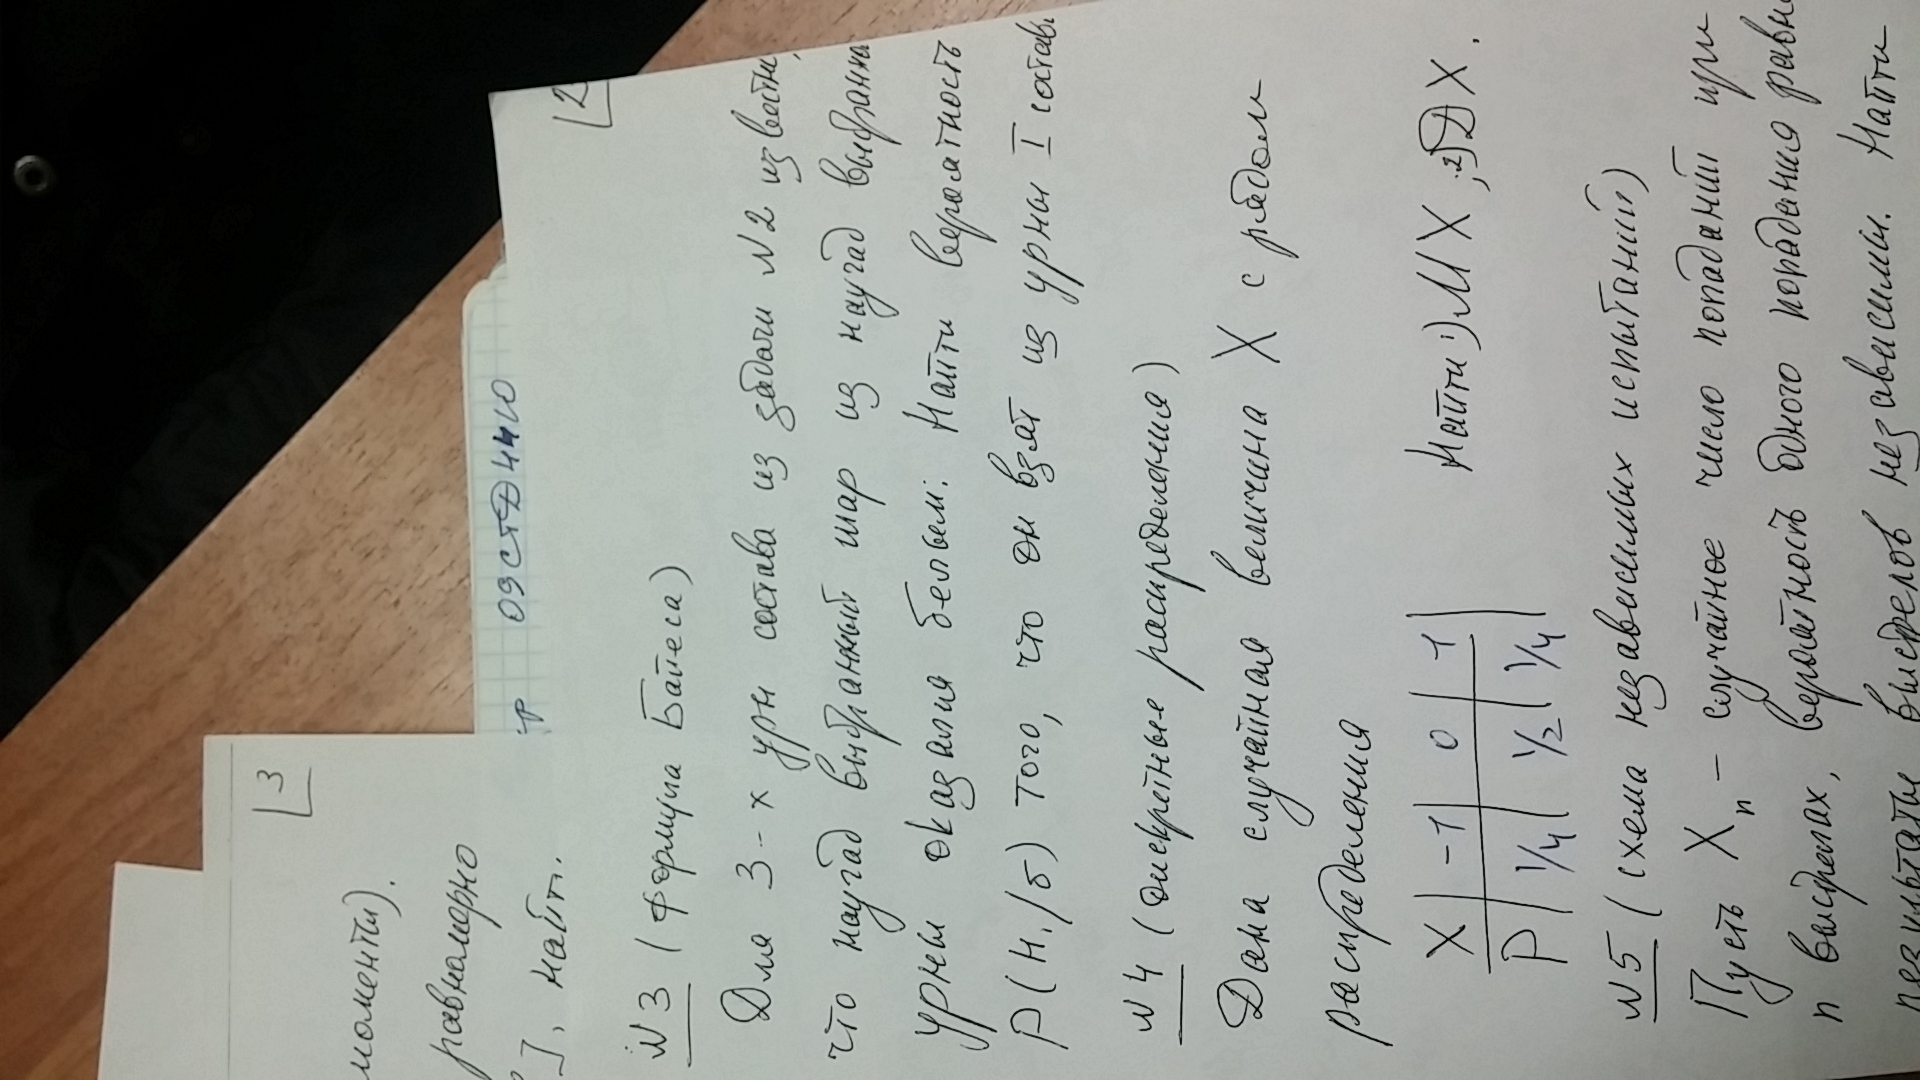 моменты).
равномерно
], найт.
[3
09СТД4410
[2
№3 (Формула Байеса)
Для 3-х урн состава из задачи №2 известн,
что наугад выбранный шар из наугад выбранн
урны оказался белым. Найти вероятность
P(H₁/б) того, что он взят из урны I состав
№4 (дискретные распределения)
Дана случайная величина X с рядом
распределения
X | -1 | 0 | 1
P | 1/4 | 1/2 | 1/4 |
Найти 1) MX, 2) DX.
№5 (схема независимых испытаний)
Пусть Xn – случайное число попаданий при
n выстрелах, вероятность одного попадания равн
результаты выстрелов независимы. Найти